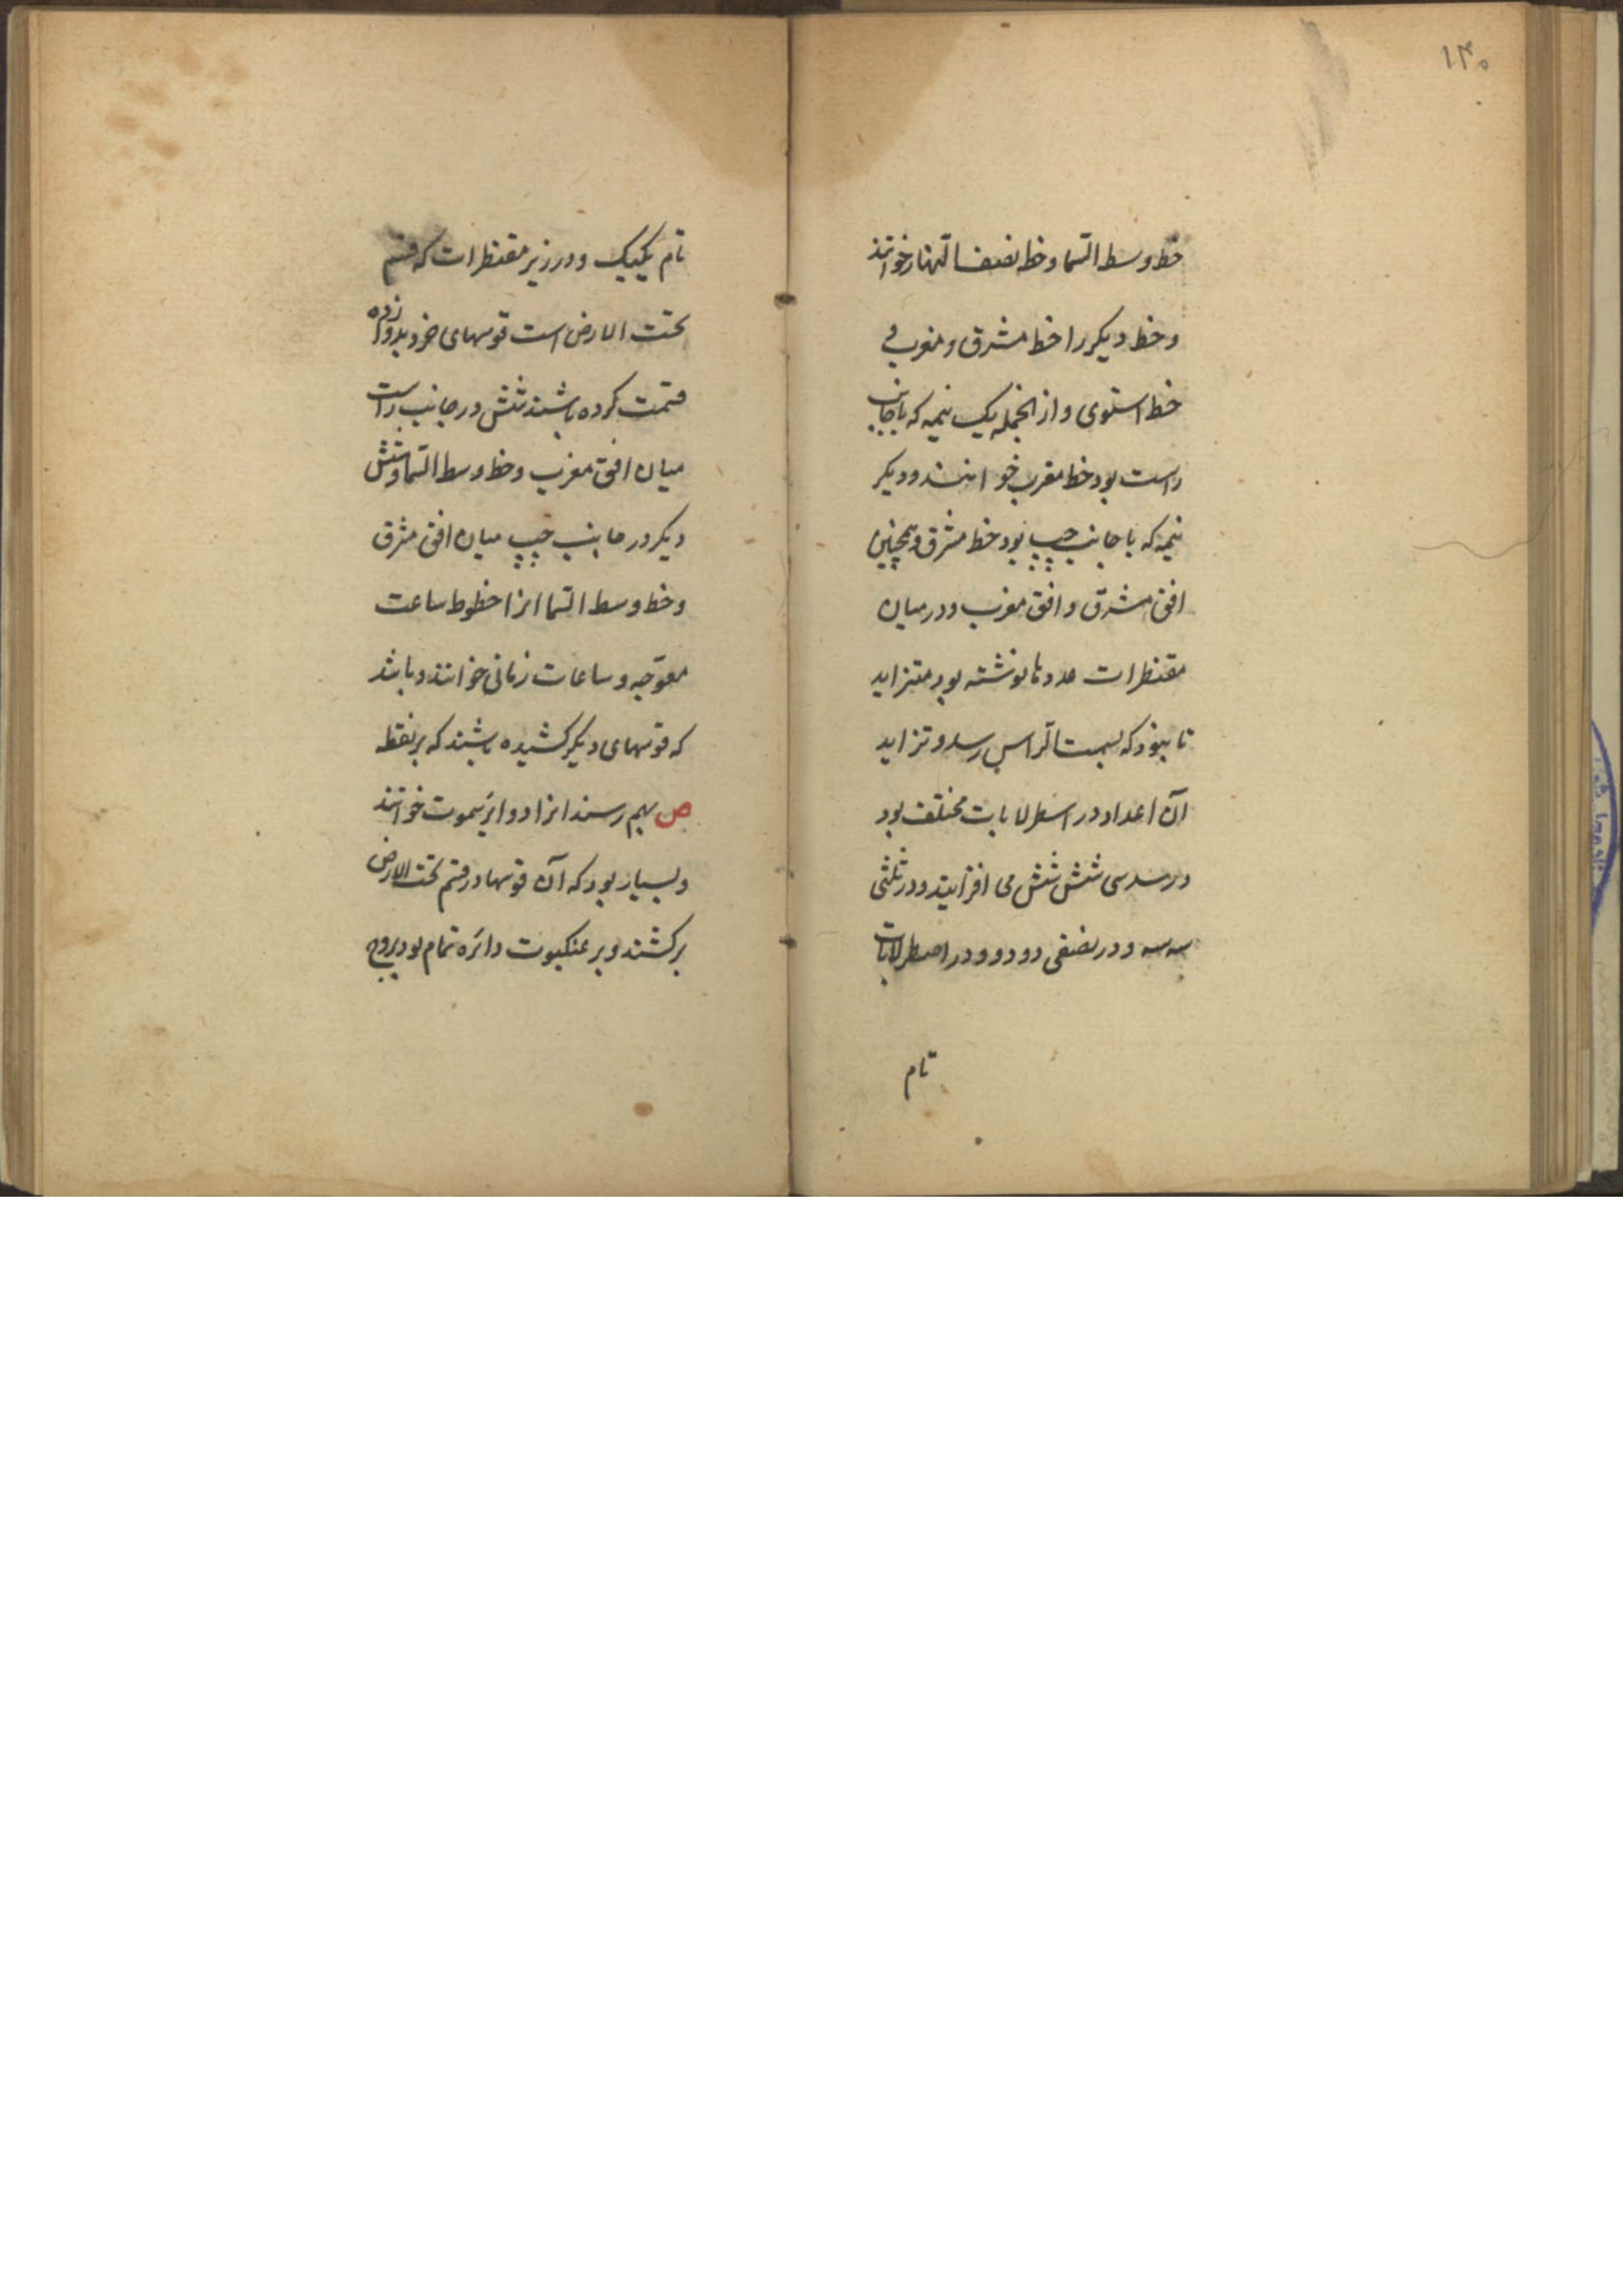 ۱۳۰
خط وسط السما و خط نصف النهار خوانند
و خط دیکر را خط مشرق و مغرب و
خط استوی و از انجمله یک نیمه که با جانب
راست بود خط مغرب خوانند و دیکر
نیمه که با جانب چپ بود خط مشرق و همچنین
افق مشرق و افق مغرب و در میان
مقنطرات عددها نوشته بود متزاید
تا بنود که بسمت الراس رسد و تزاید
آن اعداد در اسطرلابات مختلف بود
در سدسی شش شش می افزایند و در ثلثی
سه سه و در نصفی دو دو و در اصطرلابات
تام
تام یکیک و در زیر مقنطرات که قسم
تحت الارض است قوسهای خرد بدوازده
قسمت کرده باشند شش در جانب راست
میان افق مغرب و خط وسط السما و شش
دیکر در جانب چپ میان افق مشرق
و خط وسط السما انرا خطوط ساعت
معوجه و ساعات زمانی خوانند و باشد
که قوسهای دیکر کشیده باشند که بر نقطه
ص بهم رسند انرا دوایر سموت خوانند
و بسیار بود که آن قوسها در قسم تحت الارض
برکشند و بر عنکبوت دائره تمام بود بروج